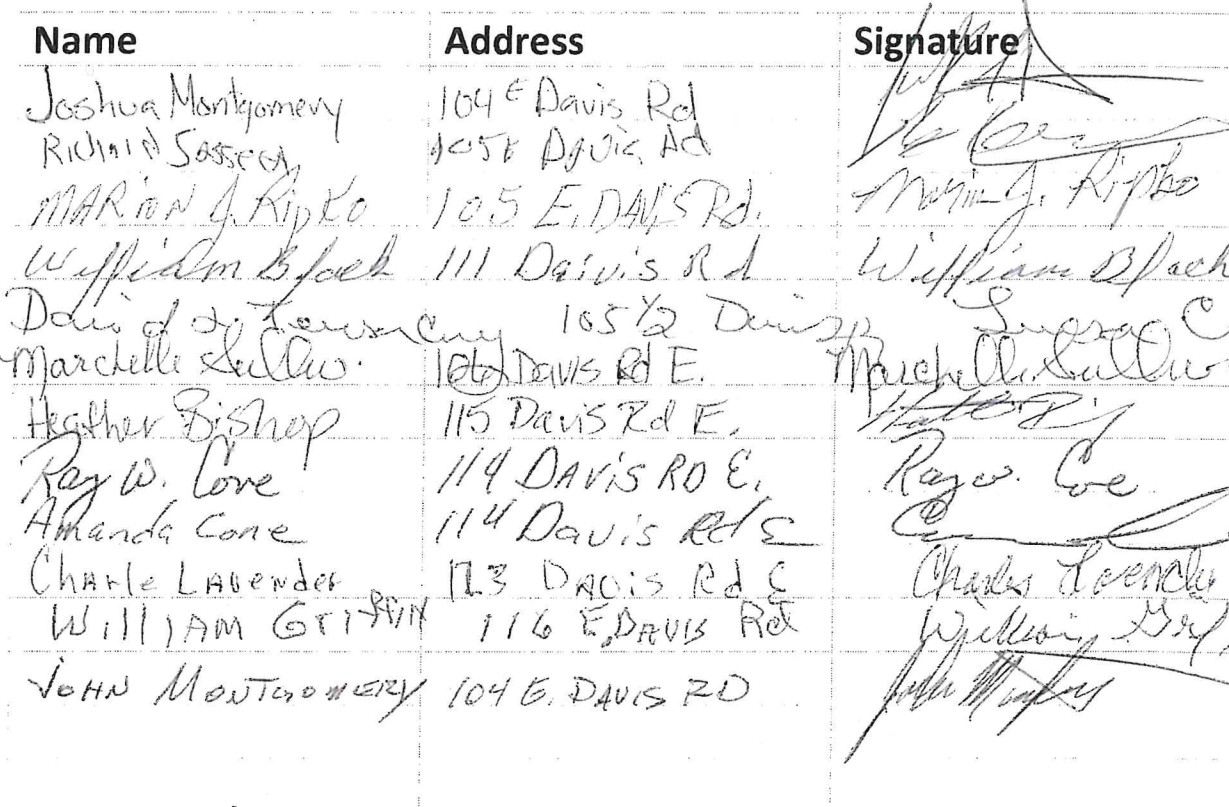 Name Address Signature
Joshua Montgomery 104 E Davis Rd
Richard 105 E Davis Rd
MARION J. Ripko 105 E. DAVIS Rd. Marion J. Ripko
William Black 111 Davis Rd William Black
David 105 1/2 Davis
Marchelle 106 DAVIS Rd E. Marchelle
Heather Bishop 115 Davis Rd E.
Ray W. Cone 114 DAVIS RD E. Ray W. Cone
Amanda Cone 114 Davis Rd E
Charle LAVENDER 113 DAVIS Rd E Charles
WILLIAM GRIFFIN 116 E. DAVIS Rd William
JOHN MONTGOMERY 104 E. DAVIS RD